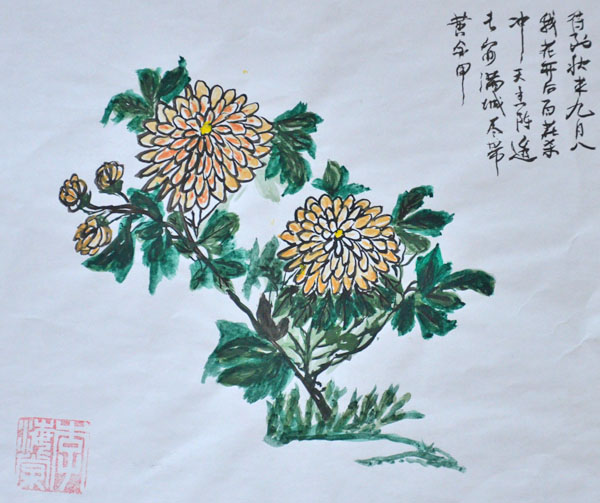 待到秋来九月八
我花开后百花杀
冲天香阵透
长安满城尽带
黄金甲